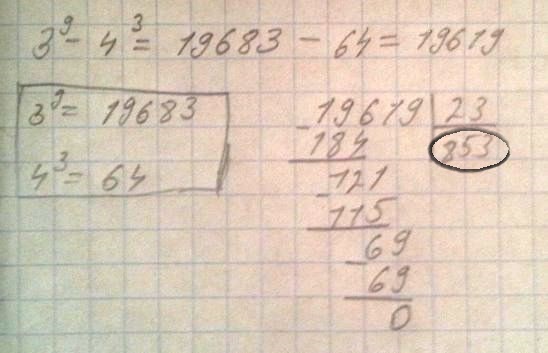 3⁹ - 4³ = 19683 - 64 = 19619
3⁹ = 19683
4³ = 64
- 19619 | 23
184 853
- 121
115
- 69
69
0